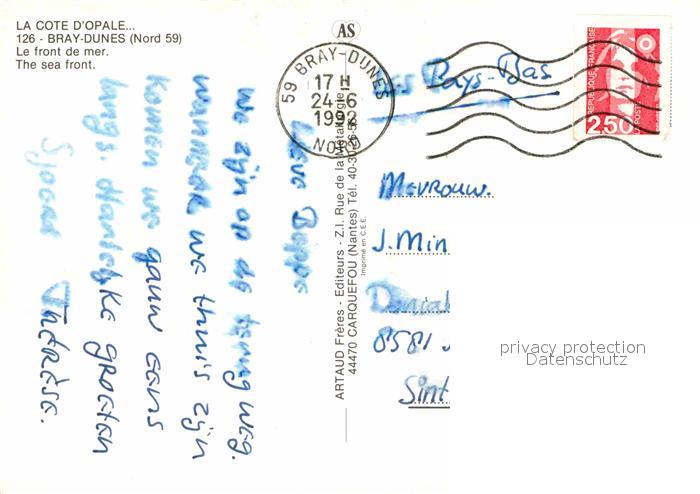 LA COTE D'OPALE...
126 - BRAY-DUNES (Nord 59)
Le front de mer.
The sea front.
AS
59 BRAY-DUNES
17 H
24-6
1992
NORD
REPUBLIQUE FRANÇAISE
LA POSTE
2,50
Pays-Bas
Lieve Beppe
We zijn op de terugweg.
Wanneer we thuis zijn
komen we gauw eens
langs. Hartelijke groeten
Sjoerd Thérèse.
ARTAUD Frères - Editeurs - Z.I. Rue de la Métallurgie
44470 CARQUEFOU (Nantes) Tél. 40-30
Imprimé en C.E.E.
Mevrouw.
J. Min
8581 J
Sint
privacy protection
Datenschutz